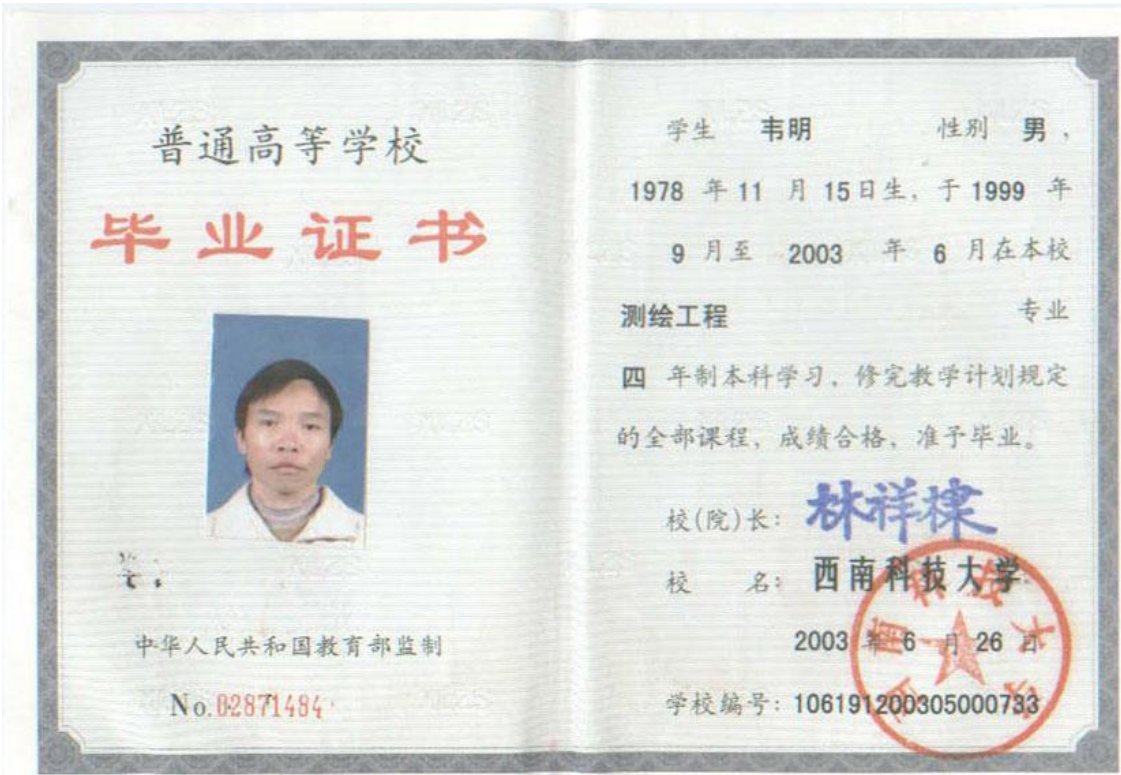 普通高等学校
毕业证书
中华人民共和国教育部监制
No.02871484
学生 韦明 性别 男，
1978 年 11 月 15日生，于 1999 年
9 月至 2003 年 6 月在本校
测绘工程 专业
四 年制本科学习，修完教学计划规定
的全部课程，成绩合格，准予毕业。
校(院)长：林祥棣
校 名：西南科技大学
2003 年 6 月 26 日
学校编号：106191200305000733
西南科技大学